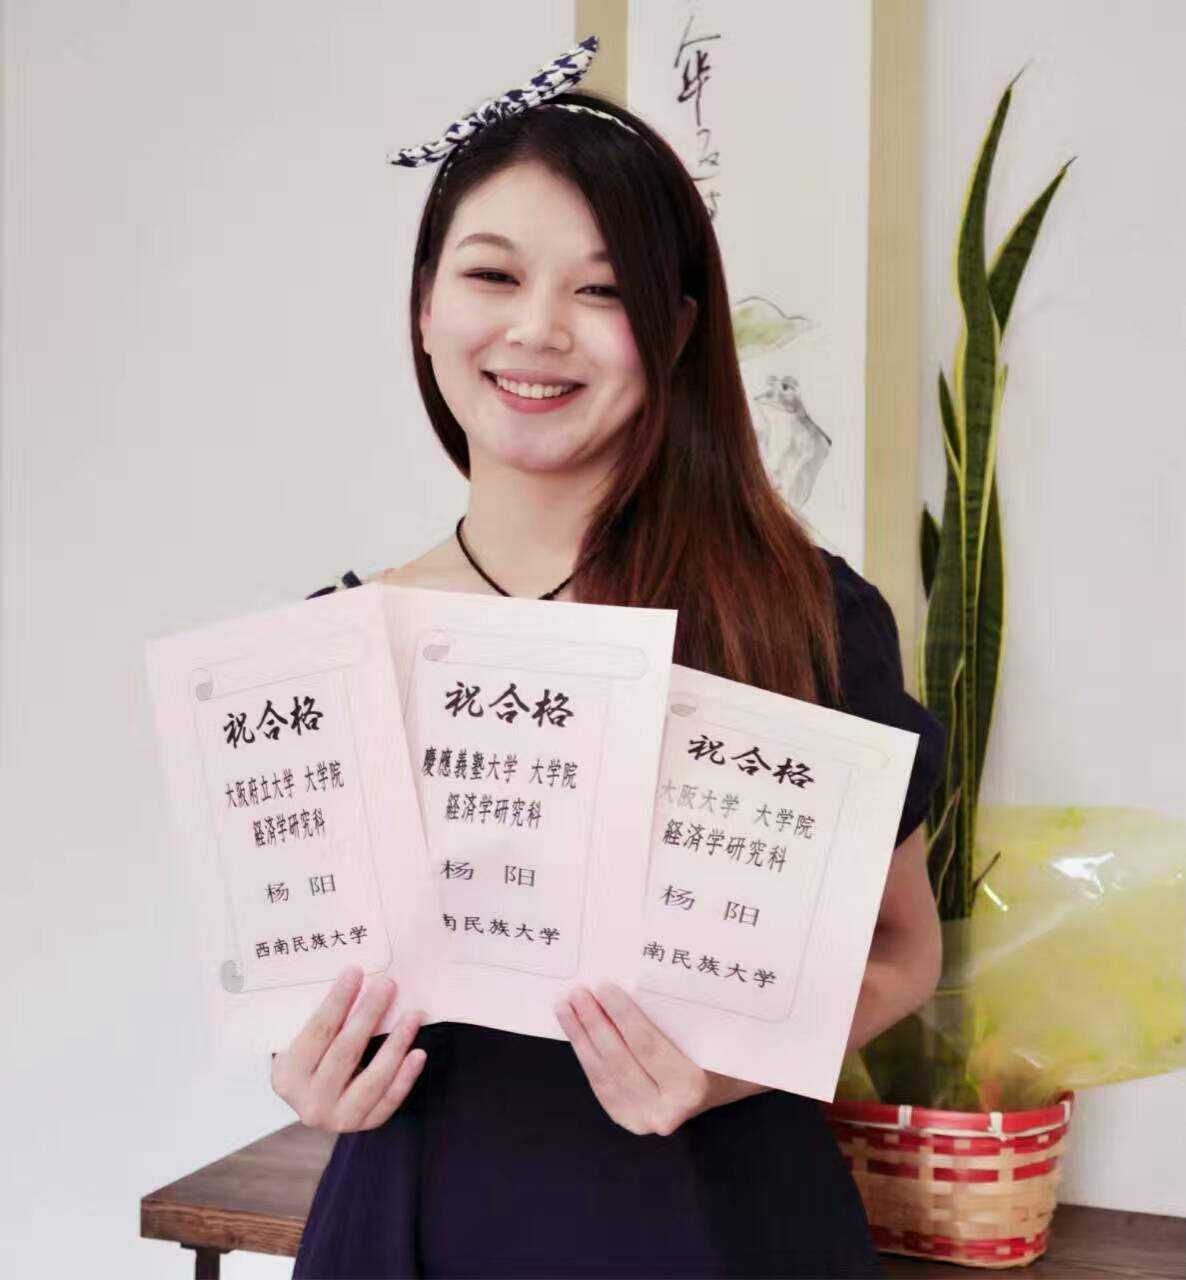 祝合格
大阪府立大学 大学院
経済学研究科
杨 阳
西南民族大学
祝合格
慶應義塾大学 大学院
経済学研究科
杨 阳
南民族大学
祝合格
大阪大学 大学院
経済学研究科
杨 阳
南民族大学